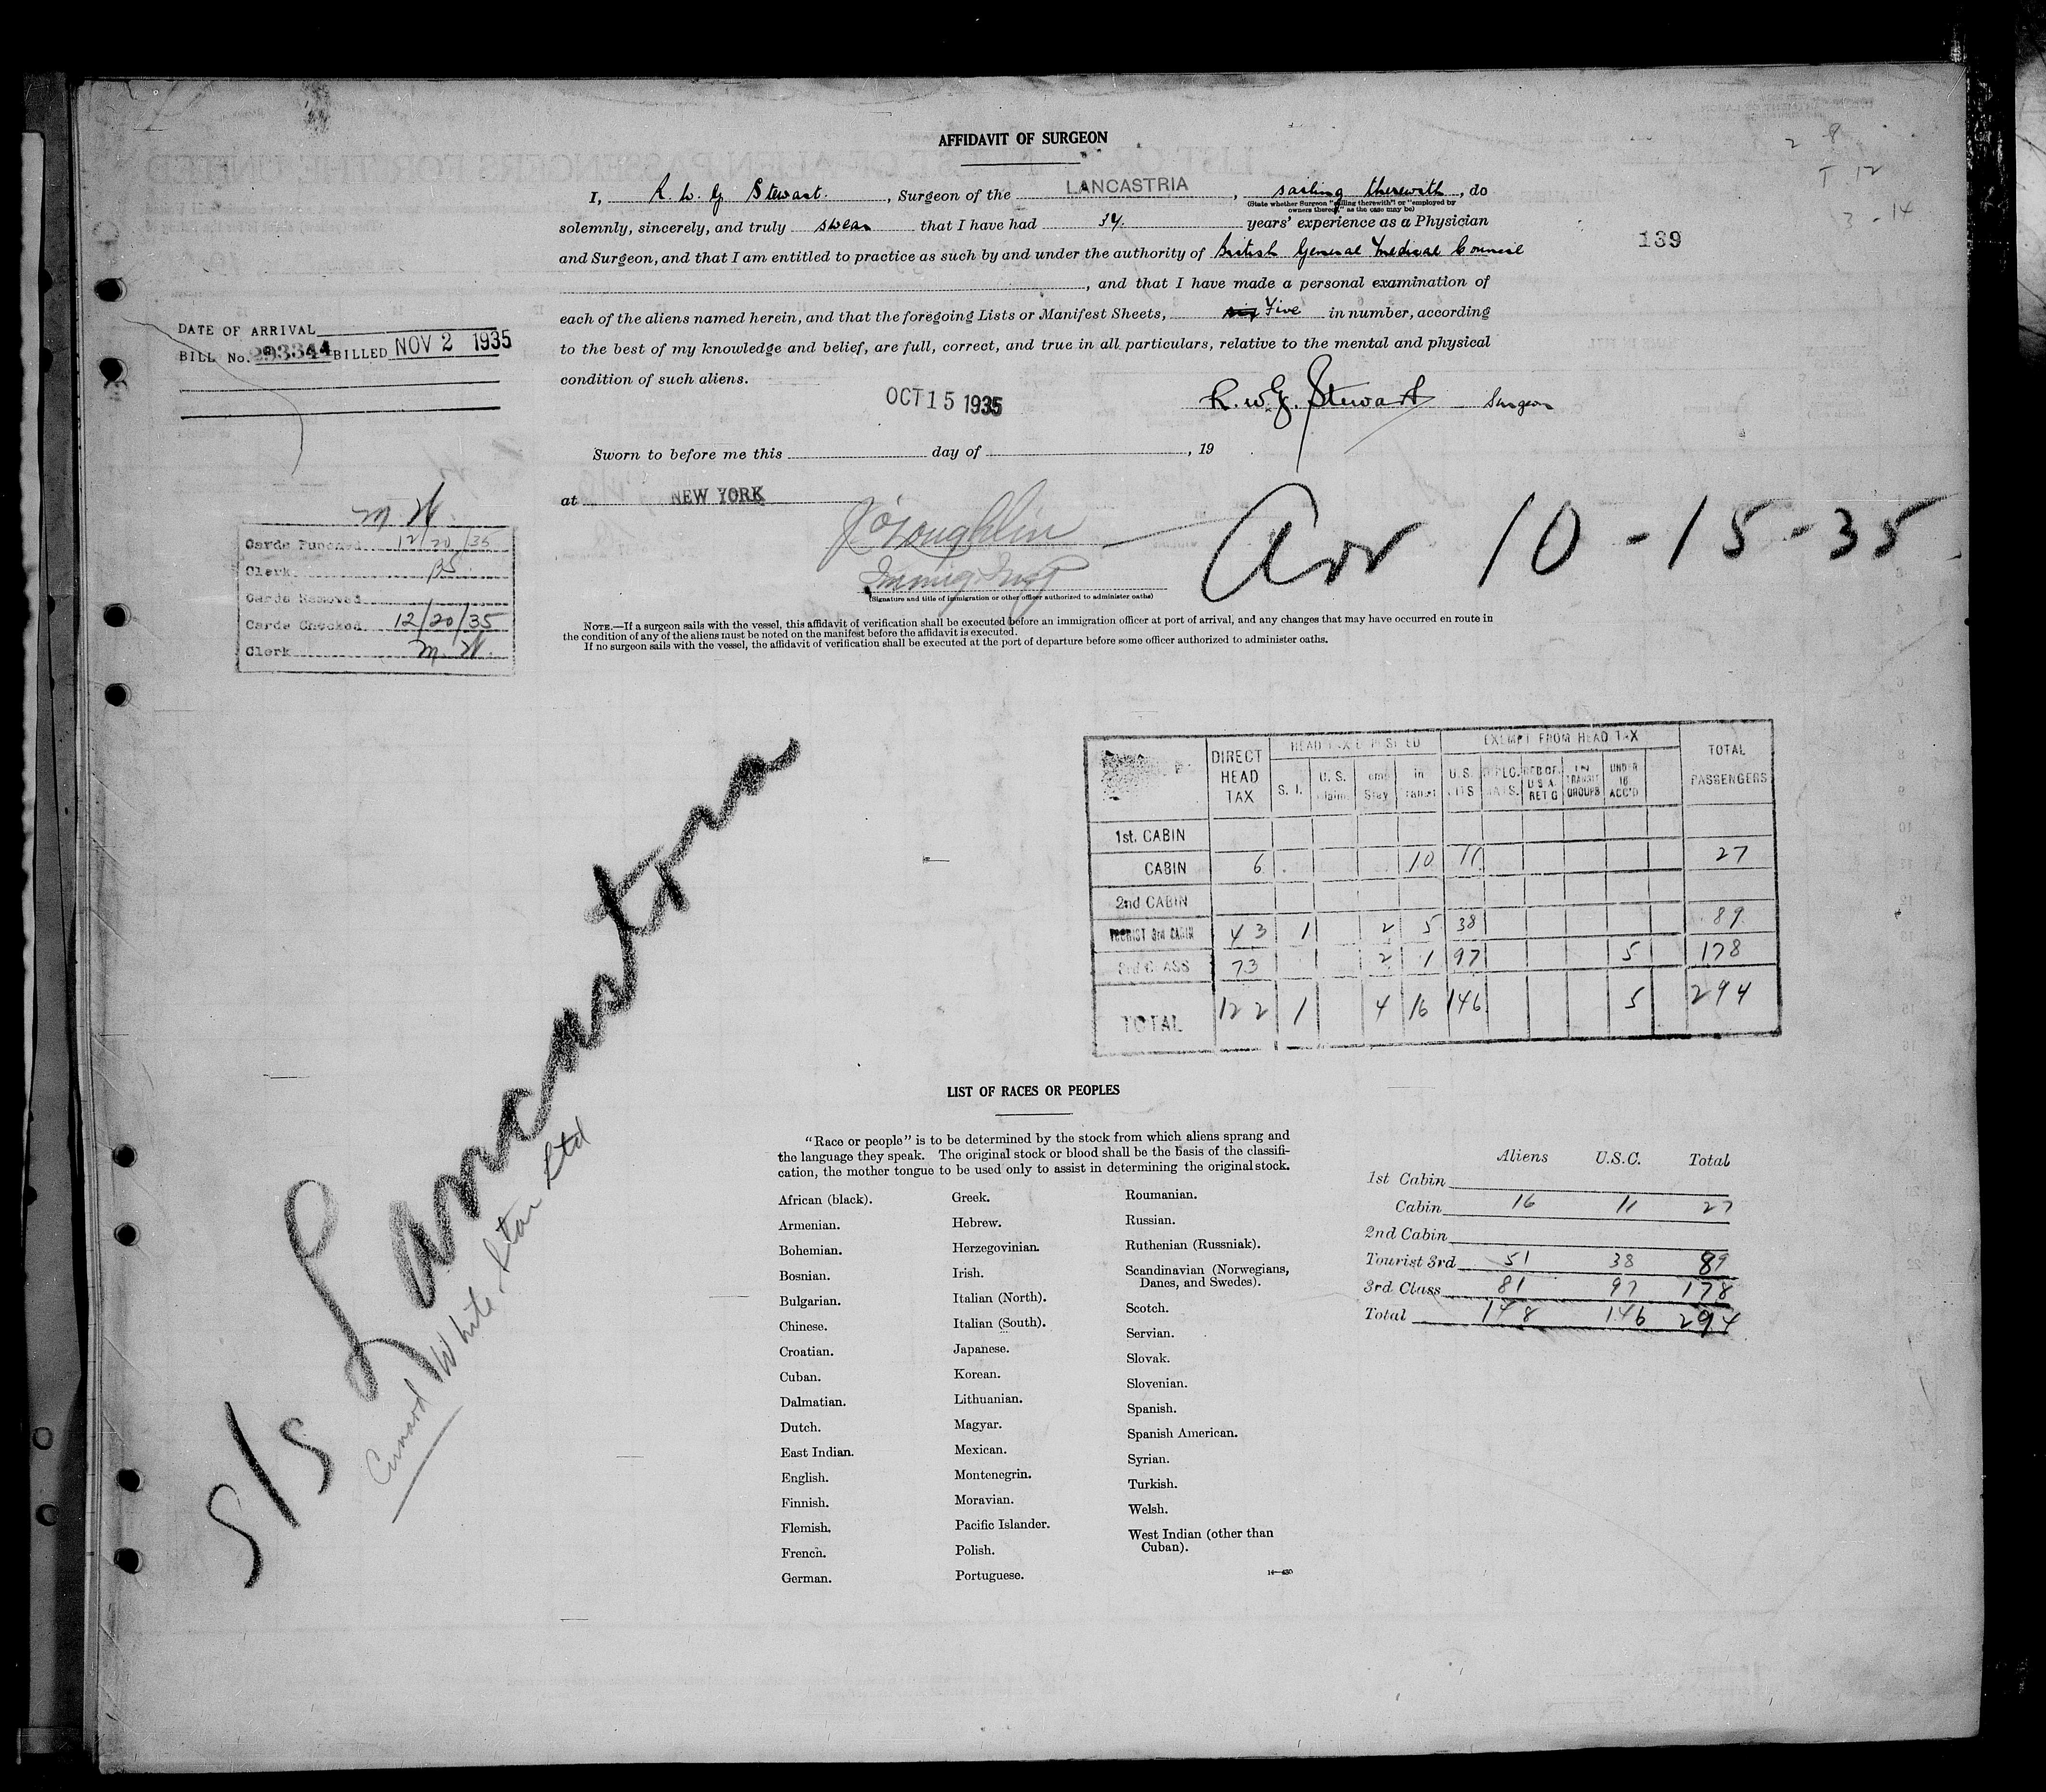 AFFIDAVIT OF SURGEON
I, R. W. G. Stewart. , Surgeon of the LANCASTRIA , sailing therewith , do
(State whether Surgeon "sailing therewith" or "employed by
owners thereof," as the case may be)
solemnly, sincerely, and truly swear that I have had 34. years' experience as a Physician
and Surgeon, and that I am entitled to practice as such by and under the authority of British General Medical Council
, and that I have made a personal examination of
each of the aliens named herein, and that the foregoing Lists or Manifest Sheets, six Five in number, according
to the best of my knowledge and belief, are full, correct, and true in all particulars, relative to the mental and physical
condition of such aliens.
139
2 8
T 12
3 - 14
DATE OF ARRIVAL
BILL No. 293344 BILLED NOV 2 1935
OCT 15 1935
R. W. G. Stewart Surgeon
Sworn to before me this day of , 19
at NEW YORK
J O'Loughlin
Immig. Insp
(Signature and title of immigration or other officer authorized to administer oaths)
Arr 10-15-35
M. W.
Cards Punched 12/20/35
Clerk BS
Cards Removed
Cards Checked 12/20/35
Clerk M. W.
NOTE.—If a surgeon sails with the vessel, this affidavit of verification shall be executed before an immigration officer at port of arrival, and any changes that may have occurred en route in
the condition of any of the aliens must be noted on the manifest before the affidavit is executed.
If no surgeon sails with the vessel, the affidavit of verification shall be executed at the port of departure before some officer authorized to administer oaths.
S/S Lancastria
Cunard White Star Ltd
DIRECT HEAD TAX HEAD TAX DEPOSITED EXEMPT FROM HEAD TAX TOTAL PASSENGERS
S. I. U. S. Claim. Stay in U. S. CITS UNDER 16 ACC'D
1st. CABIN
CABIN 6 10 11 27
2nd CABIN
TOURIST 3rd CABIN 43 1 2 5 38 89
3rd CLASS 73 2 1 97 5 178
TOTAL 122 1 4 16 146 5 294
LIST OF RACES OR PEOPLES
"Race or people" is to be determined by the stock from which aliens sprang and
the language they speak. The original stock or blood shall be the basis of the classifi-
cation, the mother tongue to be used only to assist in determining the original stock.
African (black).
Armenian.
Bohemian.
Bosnian.
Bulgarian.
Chinese.
Croatian.
Cuban.
Dalmatian.
Dutch.
East Indian.
English.
Finnish.
Flemish.
French.
German.
Greek.
Hebrew.
Herzegovinian.
Irish.
Italian (North).
Italian (South).
Japanese.
Korean.
Lithuanian.
Magyar.
Mexican.
Montenegrin.
Moravian.
Pacific Islander.
Polish.
Portuguese.
Roumanian.
Russian.
Ruthenian (Russniak).
Scandinavian (Norwegians,
Danes, and Swedes).
Scotch.
Servian.
Slovak.
Slovenian.
Spanish.
Spanish American.
Syrian.
Turkish.
Welsh.
West Indian (other than
Cuban).
Aliens U.S.C. Total
1st Cabin
Cabin 16 11 27
2nd Cabin
Tourist 3rd 51 38 89
3rd Class 81 97 178
Total 148 146 294